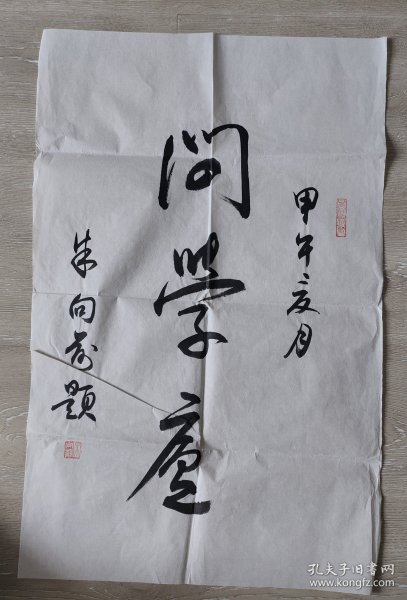 甲午夏月
问学庐
朱向前题
孔夫子旧书网
www.kongfz.com